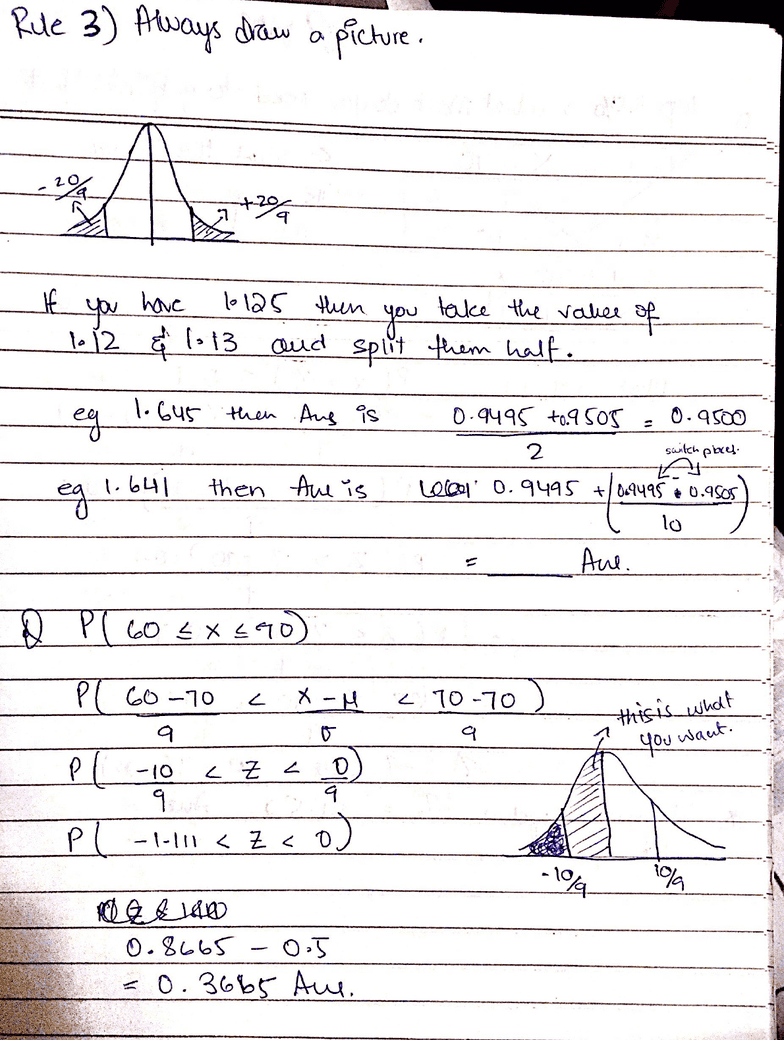 Rule 3) Always draw a picture.
- 20/9
+ 20/9
If you have 1.125 then you take the value of
1.12 & 1.13 and split them half.
eg 1.645 then Ans is (0.9495 + 0.9505)/2 = 0.9500
switch places.
eg 1.641 then Ans is 0.9495 + (0.9495 - 0.9505 / 10)
= ______ Ans.
Q P( 60 ≤ x ≤ 70)
P( 60-70 / 9 < x-μ / σ < 70-70 / 9 )
this is what
you want.
P( -10/9 < Z < 0/9 )
P( -1.111 < Z < 0 )
-10/9
10/9
0.8665 - 0.5
= 0.3665 Ans.